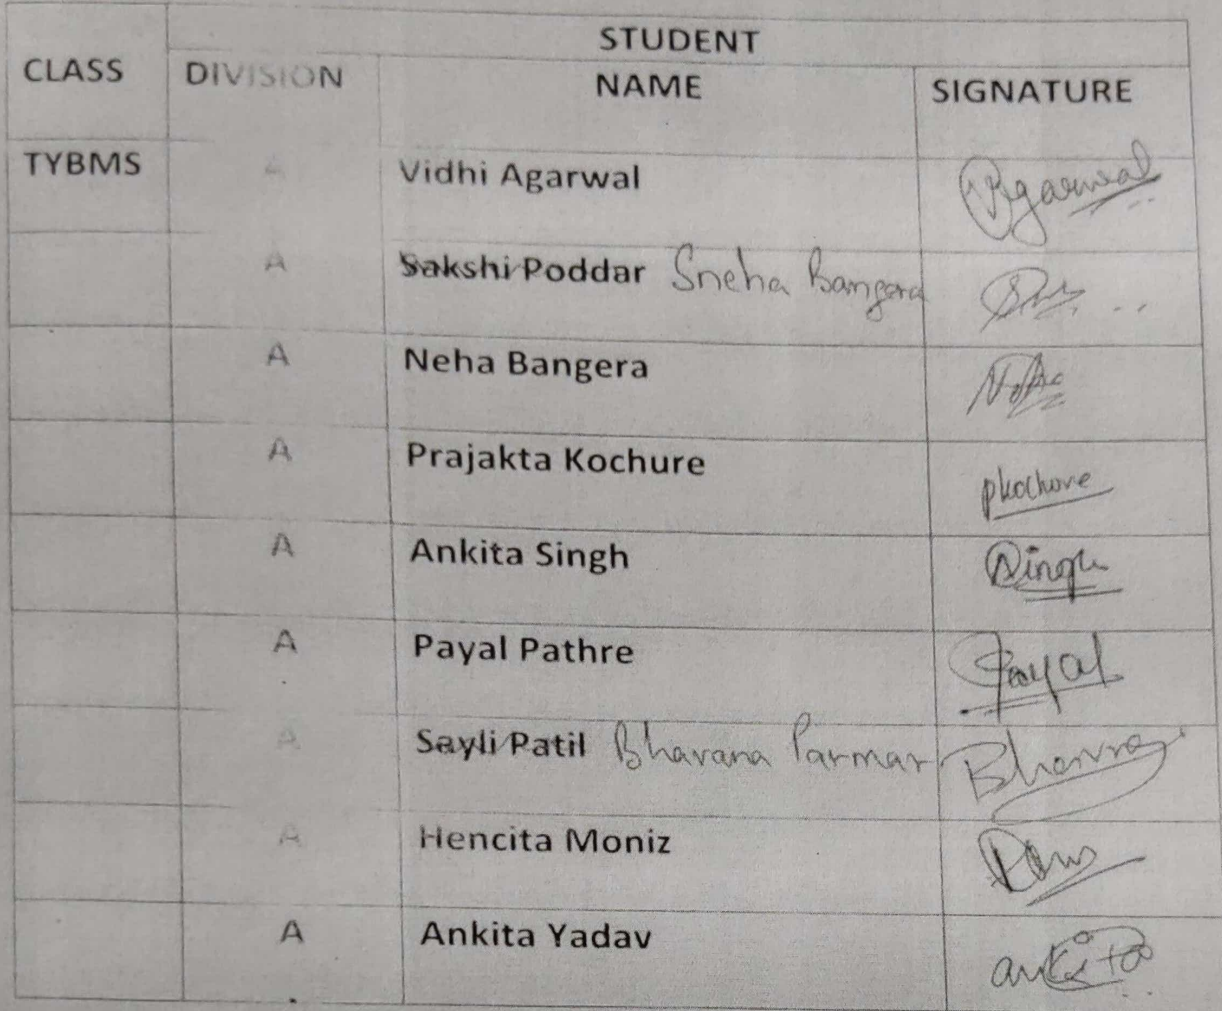 STUDENT
CLASS DIVISION NAME SIGNATURE
TYBMS A Vidhi Agarwal Agarwal
A Sakshi Poddar Sneha Bangera
A Neha Bangera Neha
A Prajakta Kochure pkochure
A Ankita Singh Singh
A Payal Pathre Payal
A Sayli Patil Bhavana Parmar
A Hencita Moniz
A Ankita Yadav ankita